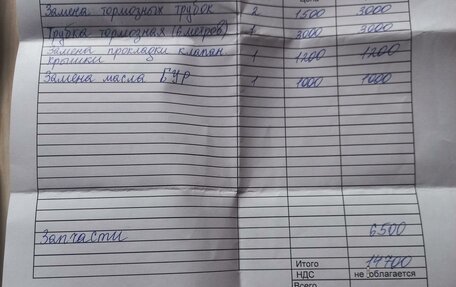 Цена
Замена тормозных трубок 2 1500 3000
Трубка тормозная (6 метров) 1 3000 3000
Замена прокладки клапан. крышки 1 1200 1200
Замена масла ГУР 1 1000 1000
Запчасти 6500
Итого 14700
НДС не облагается
Всего